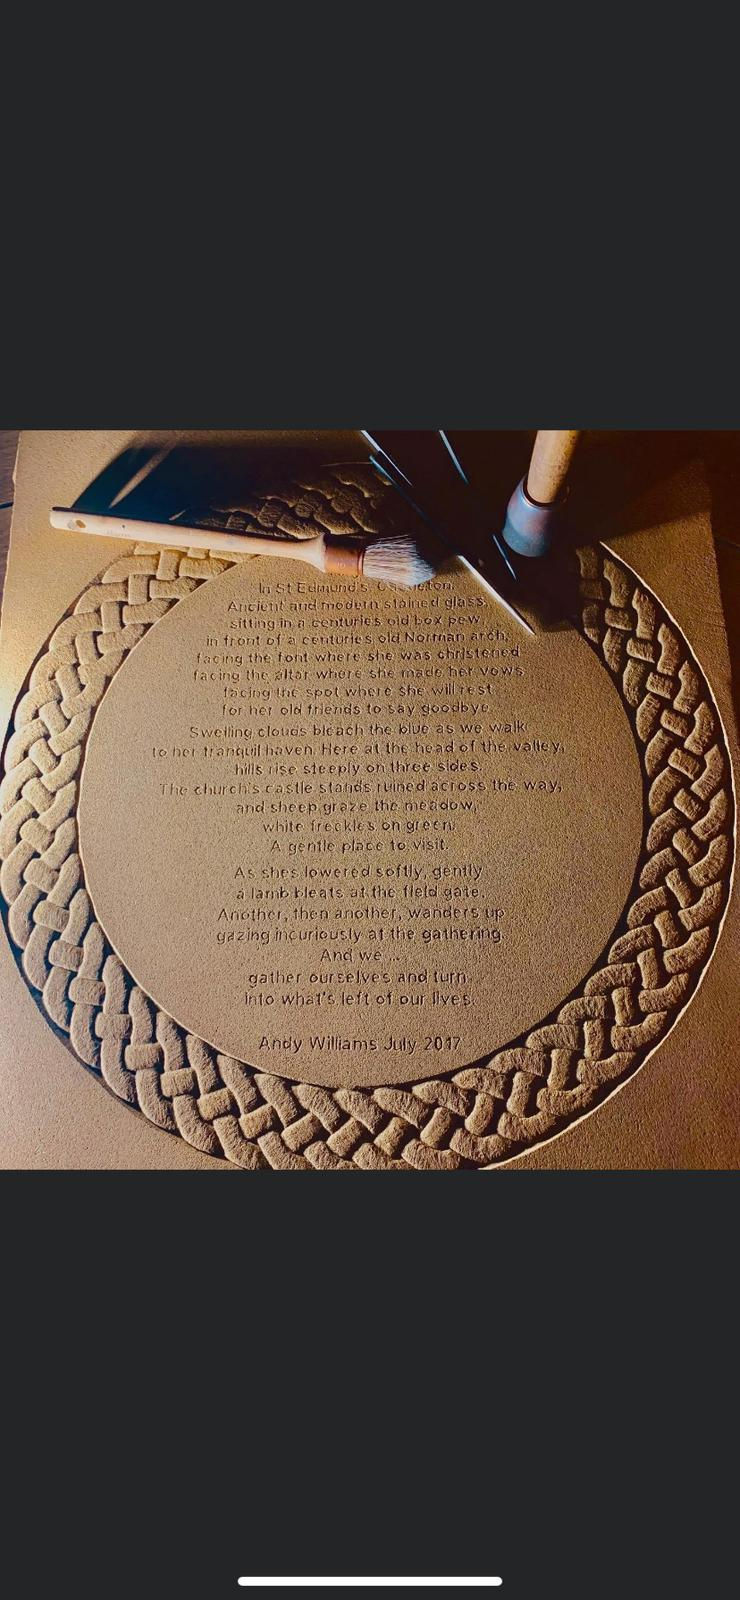 In St Edmund's, Castleton.
Ancient and modern stained glass,
sitting in a centuries old box pew
in front of a centuries old Norman arch,
facing the font where she was christened
facing the altar where she made her vows
facing the spot where she will rest
for her old friends to say goodbye.
Swelling clouds bleach the blue as we walk
to her tranquil haven. Here at the head of the valley,
hills rise steeply on three sides.
The church's castle stands ruined across the way,
and sheep graze the meadow,
white freckles on green.
A gentle place to visit.
As shes lowered softly, gently
a lamb bleats at the field gate.
Another, then another, wanders up
gazing incuriously at the gathering.
And we ...
gather ourselves and turn
into what's left of our lives.
Andy Williams July 2017